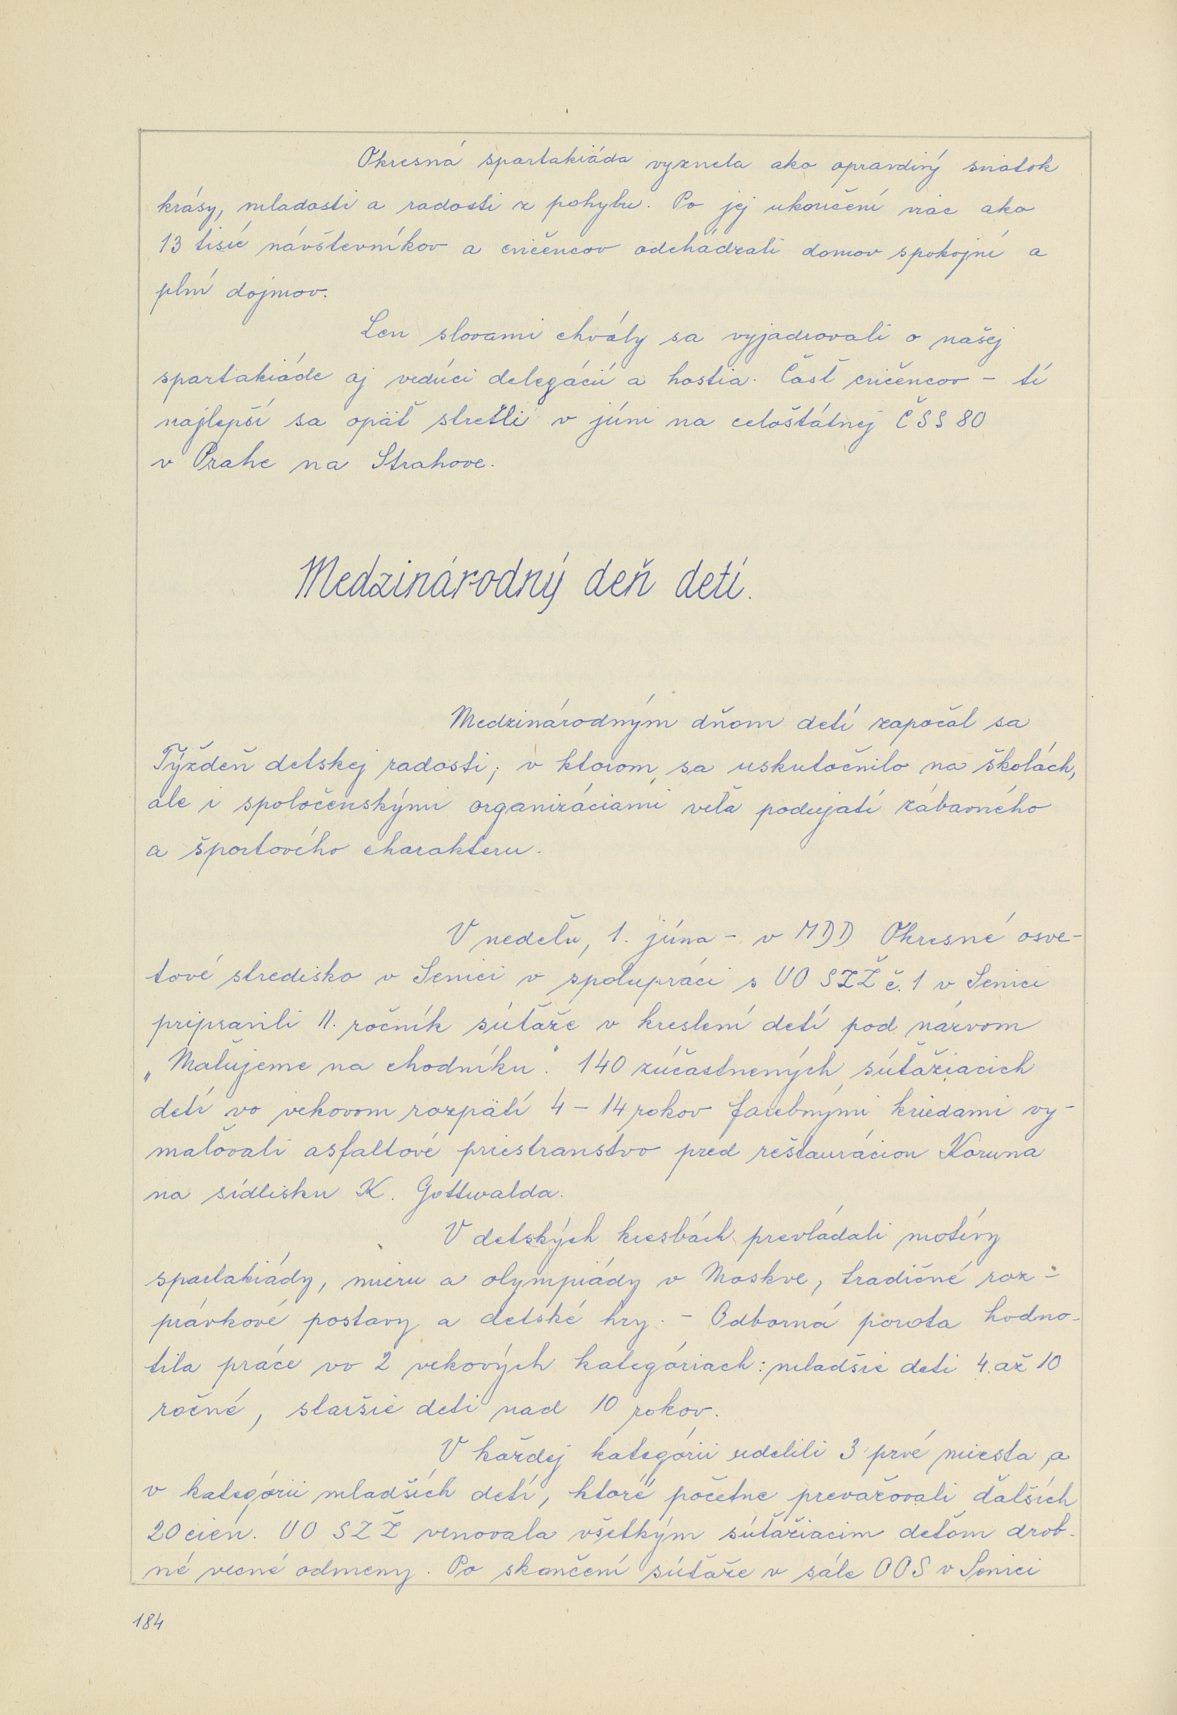 Okresná spartakiáda vyznela ako opravdivý sviatok
krásy, mladosti a radosti z pohybu. Po jej ukončení viac ako
13 tisíc návštevníkov a cvičencov odchádzali domov spokojní a
plní dojmov.
Len slovami chvály sa vyjadrovali o našej
spartakiáde aj vedúci delegácií a hostia. Časť cvičencov – tí
najlepší sa opäť stretli v júni na celoštátnej ČSS 80
v Prahe na Strahove.
Medzinárodný deň detí.
Medzinárodným dňom detí započal sa
Týždeň detskej radosti, v ktorom sa uskutočnilo na školách,
ale i spoločenskými organizáciami veľa podujatí zábavného
a športového charakteru.
V nedeľu, 1. júna – v MDD Okresné osve-
tové stredisko v Senici v spolupráci s VO SZŽ č. 1 v Senici
pripravili II. ročník súťaže v kreslení detí pod názvom
„Maľujeme na chodníku". 140 zúčastnených súťažiacich
detí vo vekovom rozpätí 4 – 14 rokov farebnými kriedami vy-
maľovali asfaltové priestranstvo pred reštauráciou Koruna
na sídlisku K. Gottwalda.
V detských kresbách prevládali motívy
spartakiády, mieru a olympiády v Moskve, tradičné roz-
právkové postavy a detské hry. – Odborná porota hodno-
tila práce vo 2 vekových kategóriach: mladšie deti 4. až 10
ročné, staršie deti nad 10 rokov.
V každej kategórii udelili 3 prvé miesta a
v kategórii mladších detí, ktoré početne prevažovali ďalších
20 cien. VO SZŽ venovala všetkým súťažiacim deťom drob-
né vecné odmeny. Po skončení súťaže v sále OOS v Senici
184